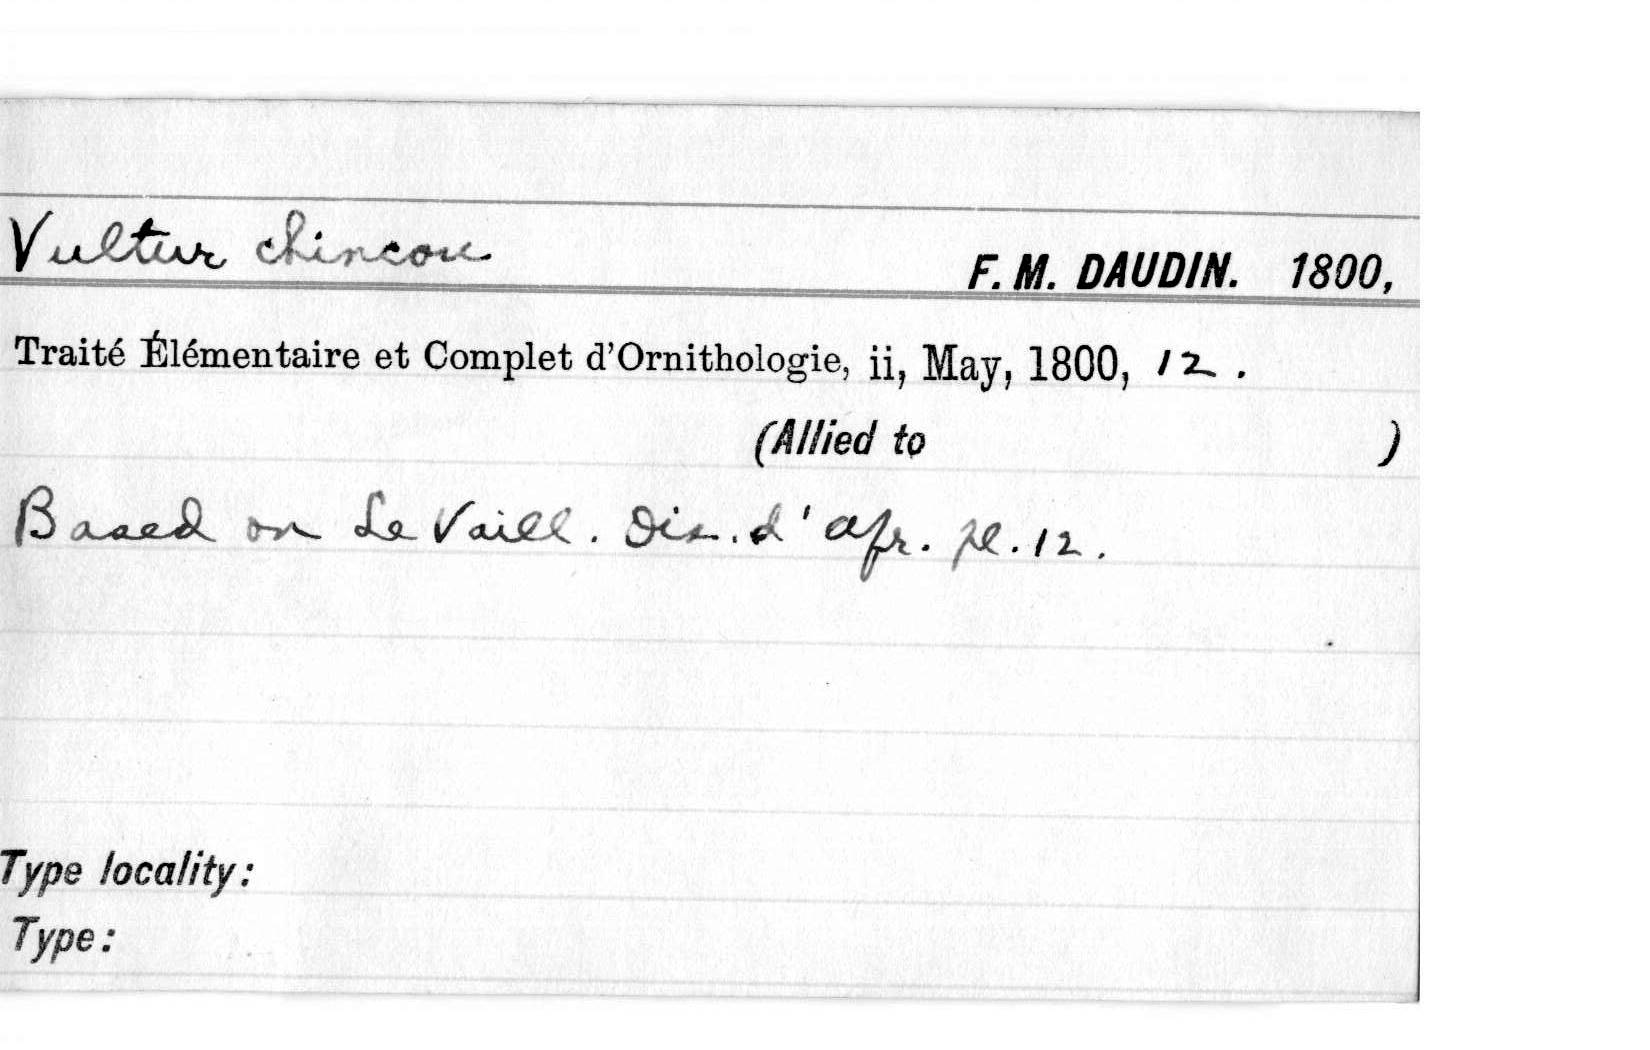 Vultur chincou F. M. DAUDIN. 1800,
Traité Élémentaire et Complet d'Ornithologie, ii, May, 1800, 12.
(Allied to )
Based on Le Vaill. Ois. d'Afr. pl. 12.
Type locality:
Type: